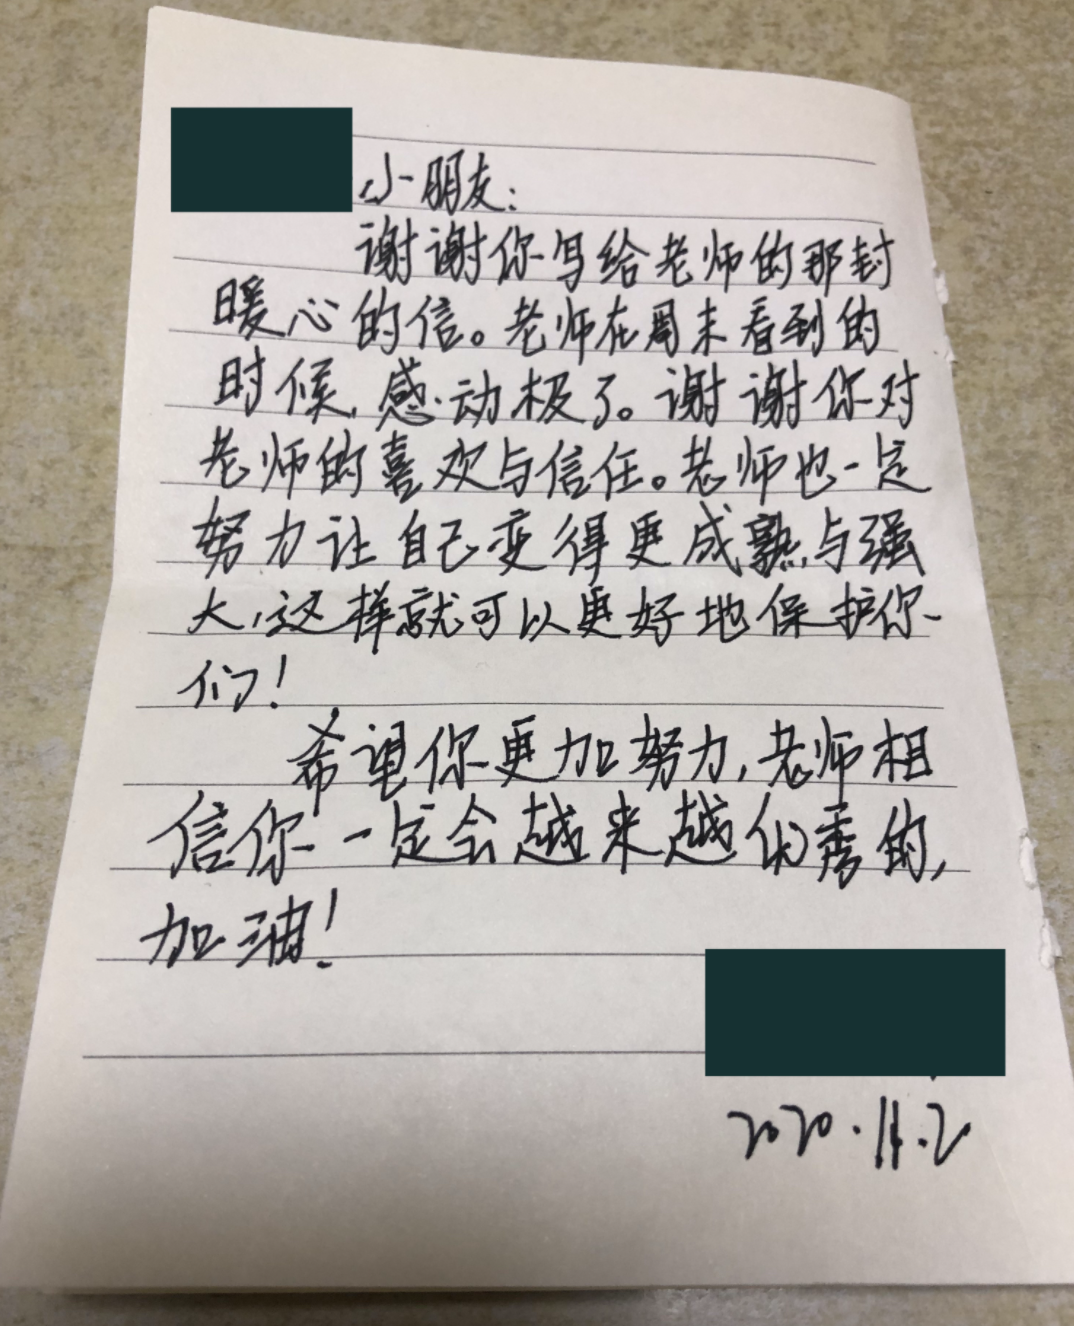 小朋友：
谢谢你写给老师的那封
暖心的信。老师在周末看到的
时候，感动极了。谢谢你对
老师的喜欢与信任。老师也一定
努力让自己变得更成熟与强
大，这样就可以更好地保护你
们！
希望你更加努力，老师相
信你一定会越来越优秀的，
加油！
2020.11.2